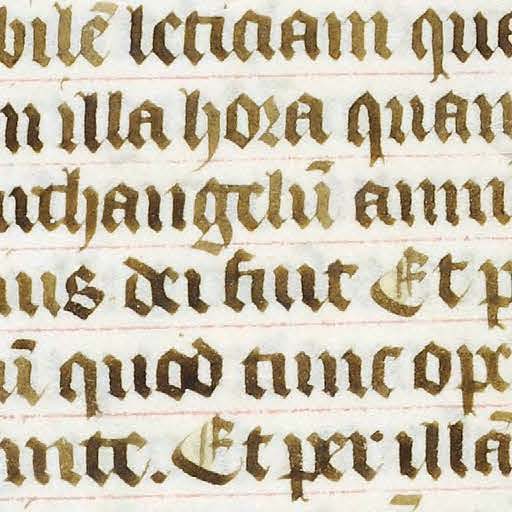 bilē leticiam que
n illa hora quan
archangelū annu
nus dei fuit Et p
ū quod tunc ope
ante. Et per illā